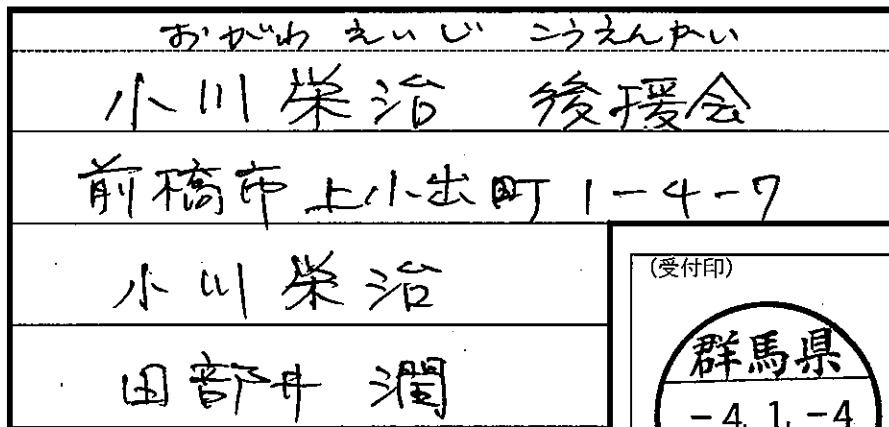 おがわ えいじ こうえんかい
小川栄治 後援会
前橋市上小出町1-4-7
小川栄治
田部井 潤
(受付印)
群馬県
-4.1.-4